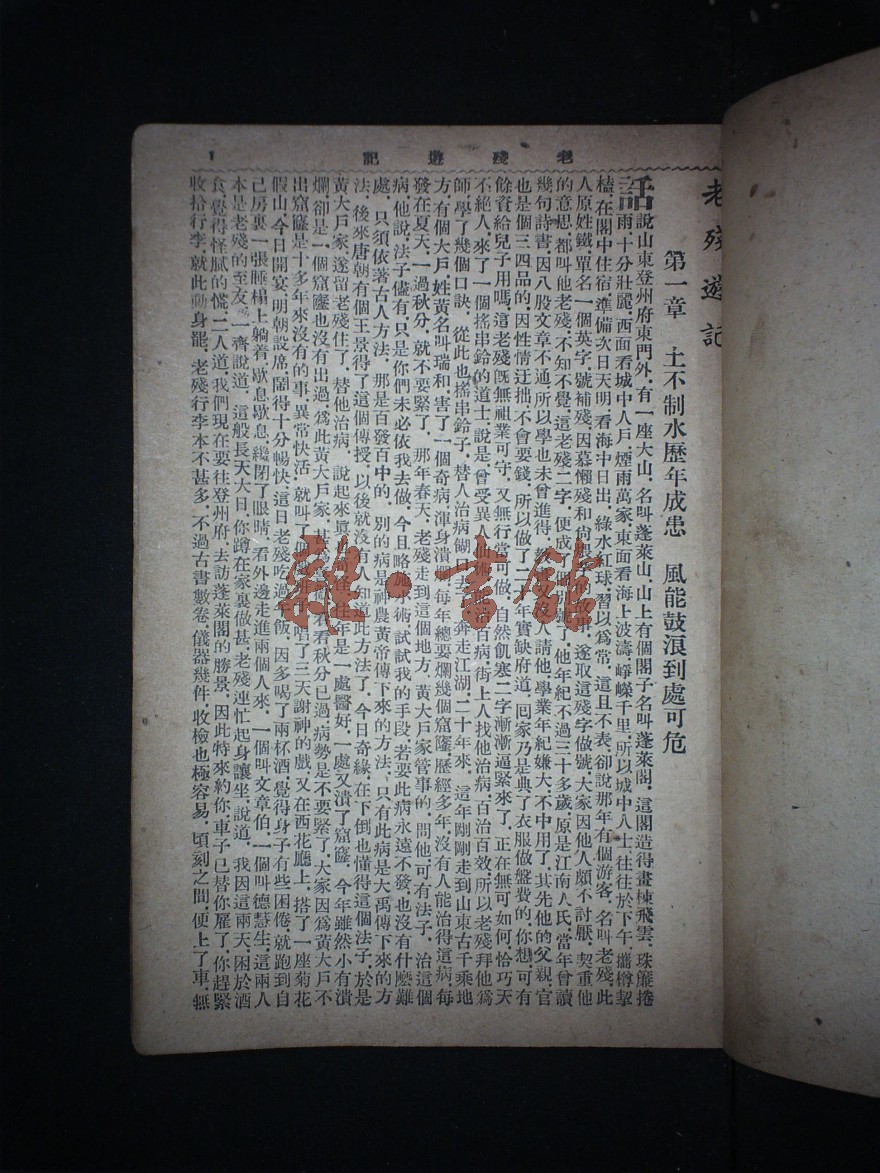 老殘遊記 1
老殘遊記
第一章 土不制水歷年成患 風能鼓浪到處可危
話說山東登州府東門外，有一座大山，名叫蓬萊山，山上有個閣子，名叫蓬萊閣，這閣造得畫棟飛雲，珠簾捲
雨，十分壯麗，西面看城中人戶，煙雨萬家，東面看海上波濤，崢嶸千里，所以城中人士往往於下午，攜樽挈
榼，在閣中住宿，準備次日天明看海中日出，綠水紅球，習以爲常，這且不表，卻說那年有個游客，名叫老殘，此
人原姓鐵，單名一個英字，號補殘，因慕懶殘和尚 遂取這殘字做號，大家因他人頗不討厭，契重他
的意思，都叫他老殘，不知不覺，這老殘二字，便成 號了，他年紀不過三十多歲，原是江南人氏，當年曾讀
幾句詩書，因八股文章不通，所以學也未曾進得， 沒人請他，學業年紀嫌大，不中用了，其先他的父親，官
也是個三四品的，因性情迂拙，不會要錢，所以做了二十年實缺府道，囘家乃是典了衣服做盤費的，你想可有
餘資給兒子用嗎，這老殘旣無祖業可守，又無行當可做，自然飢寒二字漸漸逼緊來了，正在無可如何，恰巧天
不絕人，來了一個搖串鈴的道士，說是曾受異人 能治百病，街上人找他治病，百治百效，所以老殘拜他爲
師，學了幾個口訣，從此也搖串鈴子，替人治病餬口去 奔走江湖，二十年來，這年剛剛走到山東古千乘地
方，有個大戶，姓黃，名叫瑞和，害了一個奇病，渾身潰爛，每年總要爛幾個窟窿，歷經多年，沒有人能治得這病，每
發在夏天，一過秋分，就不要緊了，那年春天，老殘走到這個地方，黃大戶家管事的，問他可有法子，治這個
病，他說，法子儘有，只是你們未必依我去做，今且略施小術，試試我的手段，若要此病永遠不發，也沒有什麼難
處，只須依著古人方法，那是百發百中的，別的病是神農黃帝傳下來的方法，只有此病是大禹傳下來的方
法，後來唐朝有個王景得了這個傳授，以後就沒有人知道此方法了，今日奇緣，在下倒也懂得這個法子，於是
黃大戶家，遂留老殘住了，替他治病，說起來眞 往年是一處醫好，一處又潰了窟窿，今年雖然小有潰
爛，卻是一個窟窿也沒有出過，爲此黃大戶家，甚爲 看看秋分已過，病勢是不要緊了，大家因爲黃大戶不
出窟窿是十多年來沒有的事，異常快活，就叫了個 唱了三天謝神的戲，又在西花廳上，搭了一座菊花
假山，今日開宴，明朝設席，鬧得十分暢快，這日老殘吃過午飯，因多喝了兩杯酒，覺得身子有些困倦，就跑到自
己房裏一張睡榻上躺着，歇息歇息，纔閉了眼睛，看外邊走進兩個人來，一個叫文章伯，一個叫德慧生，這兩人
本是老殘的至友，一齊說道，這般長天大日，你蹲在家裏做甚，老殘連忙起身讓坐，說道，我因這兩天，困於酒
食，覺得怪膩的慌，二人道，我們現在要往登州府，去訪蓬萊閣的勝景，因此特來約你，車子已替你雇了，你趕緊
收拾行李，就此動身罷，老殘行李本不甚多，不過古書數卷，儀器幾件，收檢也極容易，頃刻之間，便上了車，無
雜·書館